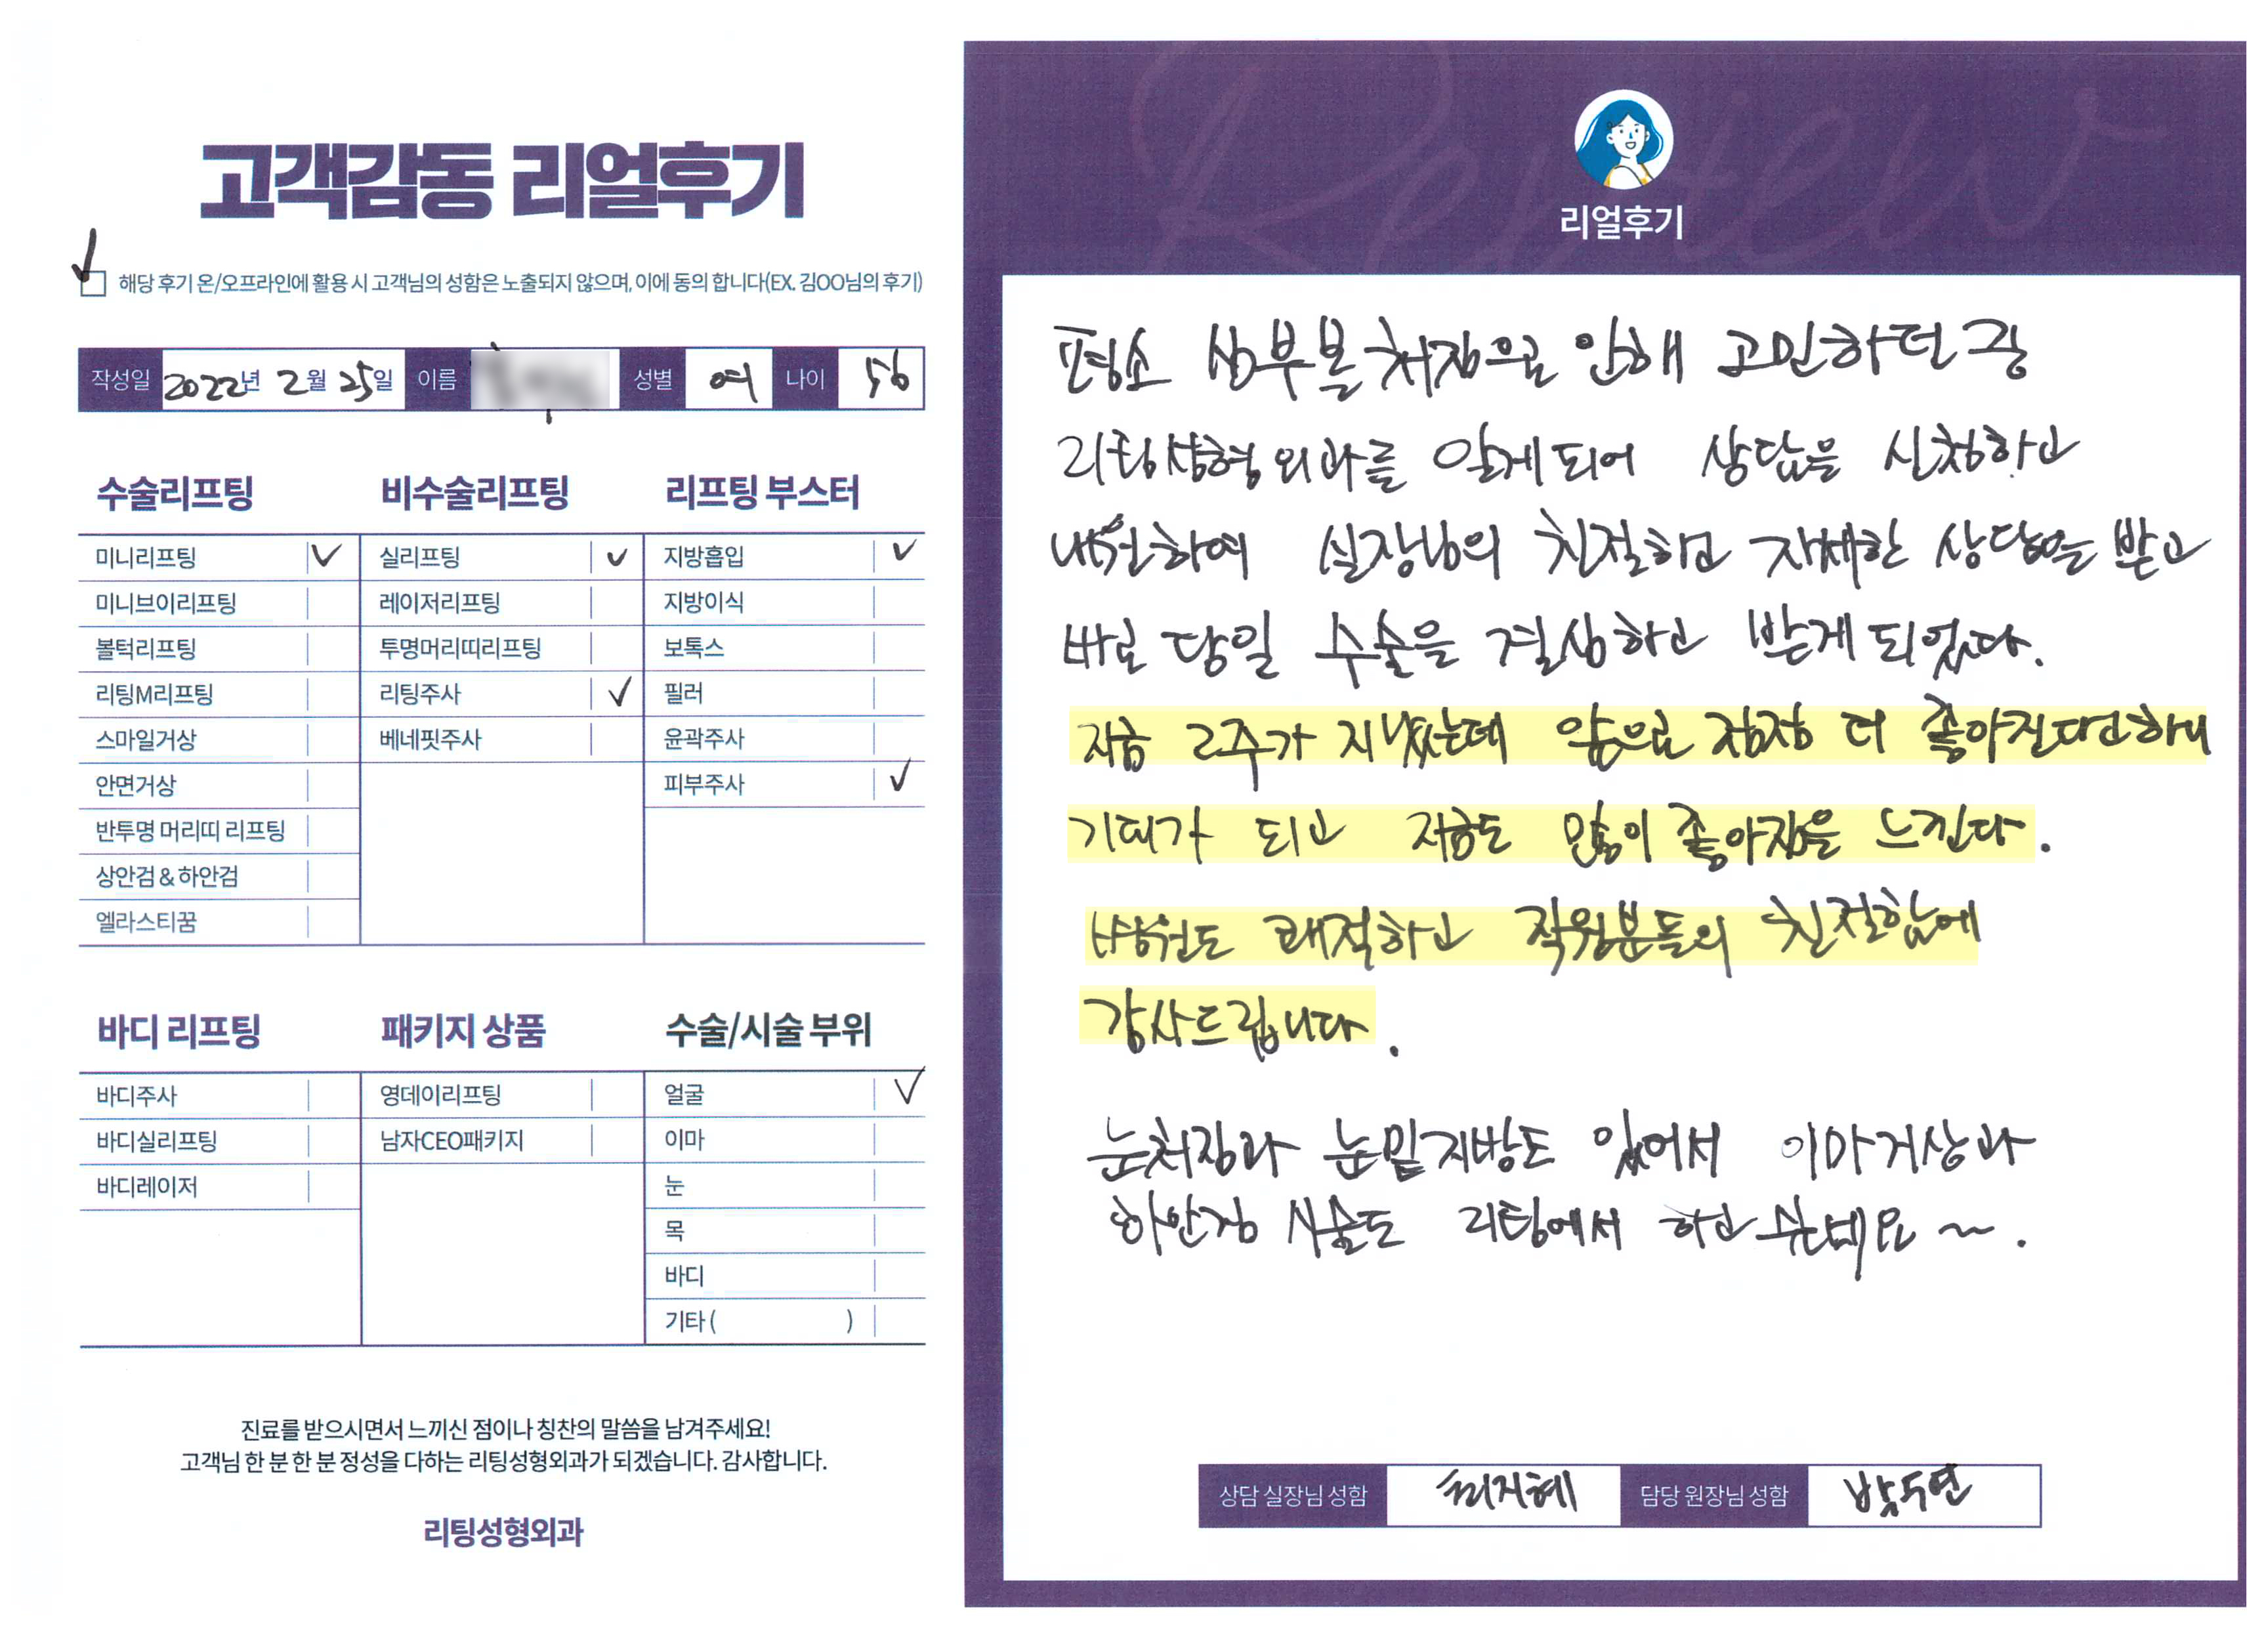 고객감동 리얼후기
해당 후기 온/오프라인에 활용 시 고객님의 성함은 노출되지 않으며, 이에 동의 합니다(EX. 김OO님의 후기)
작성일 2022년 2월 25일 이름 성별 여 나이 56
수술리프팅
미니리프팅
미니브이리프팅
볼턱리프팅
리팅M리프팅
스마일거상
안면거상
반투명 머리띠 리프팅
상안검 & 하안검
엘라스티꿈
비수술리프팅
실리프팅
레이저리프팅
투명머리띠리프팅
리팅주사
베네핏주사
리프팅 부스터
지방흡입
지방이식
보톡스
필러
윤곽주사
피부주사
바디 리프팅
바디주사
바디실리프팅
바디레이저
패키지 상품
영데이리프팅
남자CEO패키지
수술/시술 부위
얼굴
이마
눈
목
바디
기타 ( )
진료를 받으시면서 느끼신 점이나 칭찬의 말씀을 남겨주세요!
고객님 한 분 한 분 정성을 다하는 리팅성형외과가 되겠습니다. 감사합니다.
리팅성형외과
Review
리얼후기
평소 심부볼 처짐으로 인해 고민하던 중
리팅성형외과를 알게되어 상담을 신청하고
내원하여 실장님의 친절하고 자세한 상담을 받고
바로 당일 수술을 결심하고 받게 되었다.
지금 2주가 지났는데 앞으로 점점 더 좋아진다고하니
기대가 되고 지금도 많이 좋아짐을 느낀다.
병원도 쾌적하고 직원분들의 친절함에
감사드립니다.
눈처짐과 눈밑지방도 있어서 이마거상과
하안검 시술도 리팅에서 하고 싶네요 ~.
상담 실장님 성함 최지혜 담당 원장님 성함